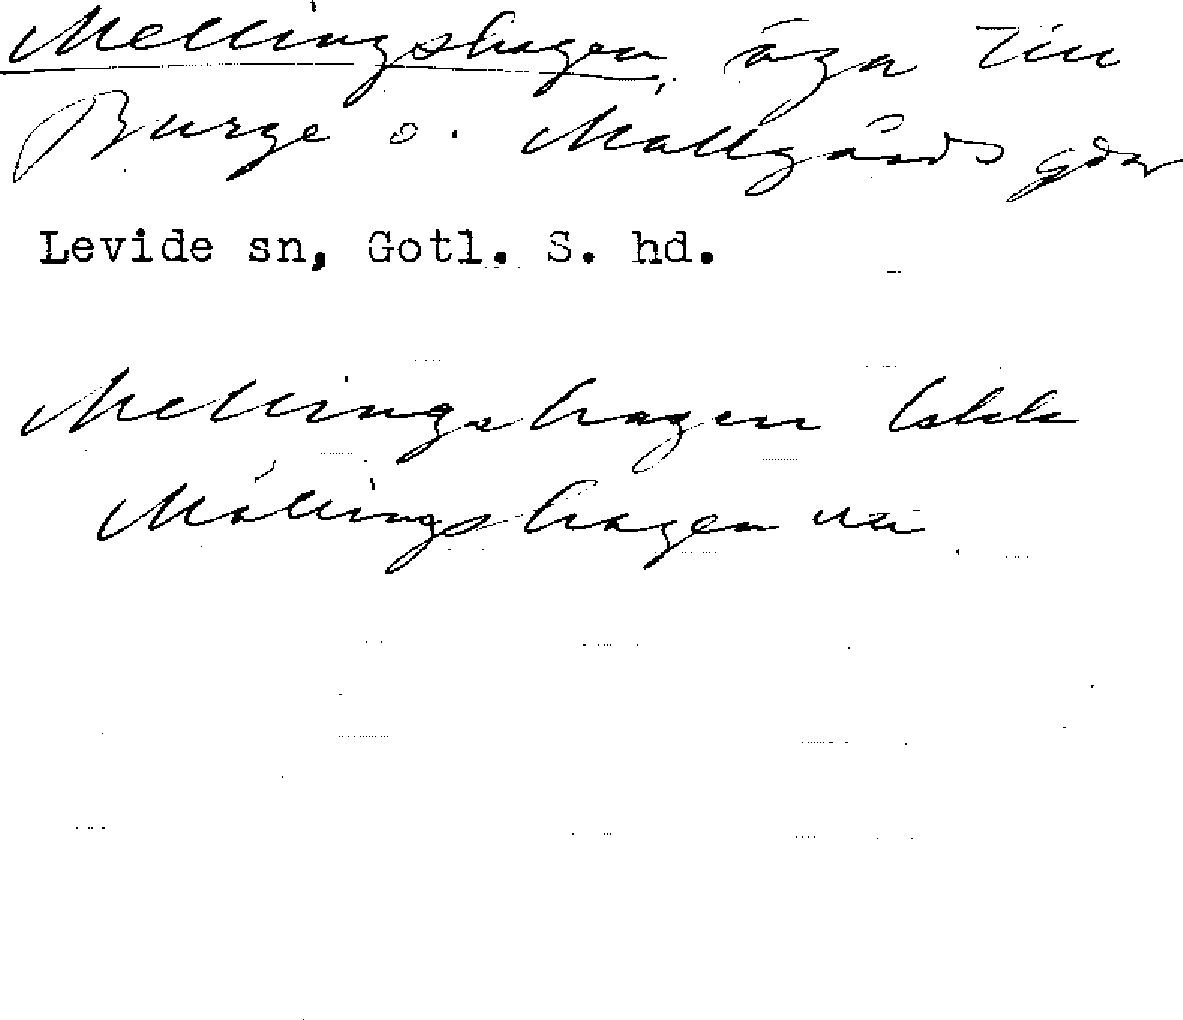 Mellingshagen, äga till
Burge o. Mallgårds gdar
Levide sn, Gotl. S. hd.
Mellingshagen lskk
Mällingshagen